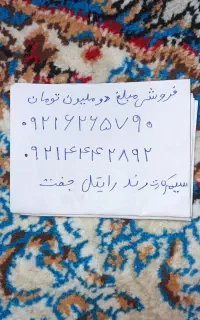 فروشی مبلغ دو ملیون تومان
۰۹۲۱۶۲۶۵۷۹۰
۰۹۲۱۴۴۴۲۸۹۲
سیمکارت رند رایتل جفت